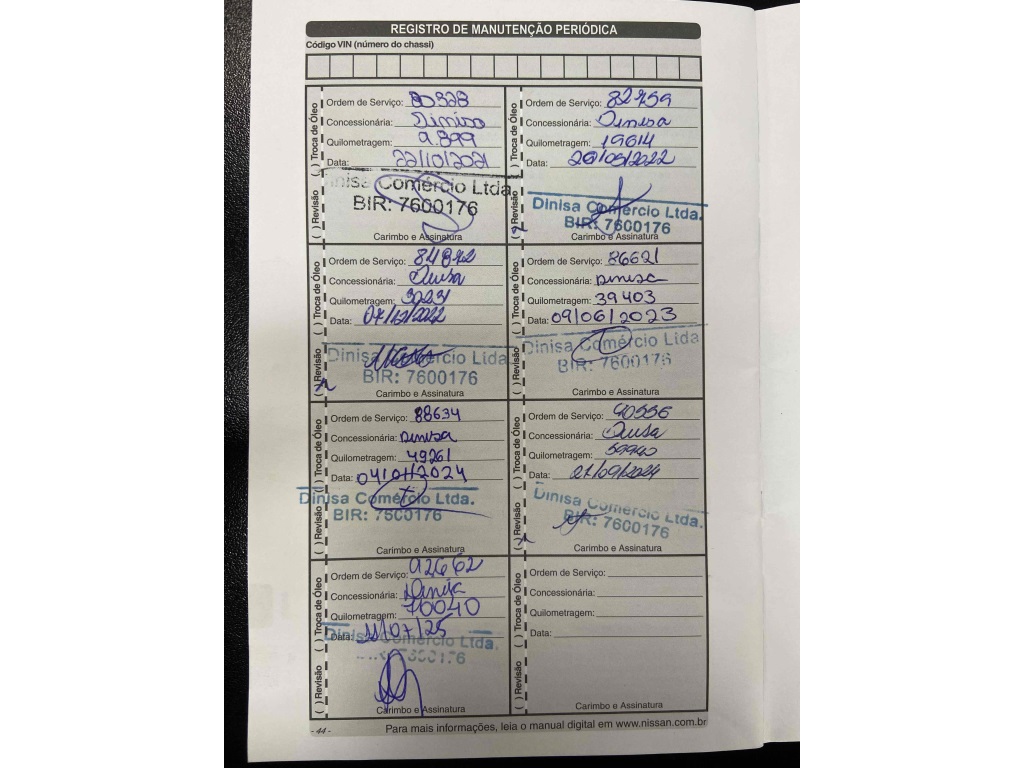 REGISTRO DE MANUTENÇÃO PERIÓDICA
Código VIN (número do chassi)
( ) Revisão ( ) Troca de Óleo
Ordem de Serviço: 80828
Concessionária: Dinisa
Quilometragem: 9.899
Data: 22/10/2021
Dinisa Comércio Ltda
BIR: 7600176
Carimbo e Assinatura
( ) Revisão ( ) Troca de Óleo
Ordem de Serviço: 82759
Concessionária: Dinisa
Quilometragem: 19614
Data: 20/05/2022
Dinisa Comércio Ltda.
BIR: 7600176
Carimbo e Assinatura
( ) Revisão ( ) Troca de Óleo
Ordem de Serviço:
Concessionária: Dinisa
Quilometragem:
Data: 07/12/2022
Dinisa Comércio Ltda
BIR: 7600176
Carimbo e Assinatura
( ) Revisão ( ) Troca de Óleo
Ordem de Serviço: 86621
Concessionária: Dinisa
Quilometragem: 39403
Data: 09/06/2023
Dinisa Comércio Ltda
BIR: 7600176
Carimbo e Assinatura
( ) Revisão ( ) Troca de Óleo
Ordem de Serviço: 88634
Concessionária: Dinisa
Quilometragem: 49261
Data: 04/01/2024
Dinisa Comércio Ltda.
BIR: 7600176
Carimbo e Assinatura
( ) Revisão ( ) Troca de Óleo
Ordem de Serviço: 90556
Concessionária: Dinisa
Quilometragem: 59940
Data: 27/09/2024
Dinisa Comércio Ltda.
BIR: 7600176
Carimbo e Assinatura
( ) Revisão ( ) Troca de Óleo
Ordem de Serviço: 92662
Concessionária: Dinisa
Quilometragem: 70040
Data: 11/07/25
Dinisa Comércio Ltda.
BIR: 7600176
Carimbo e Assinatura
( ) Revisão ( ) Troca de Óleo
Ordem de Serviço:
Concessionária:
Quilometragem:
Data:
Carimbo e Assinatura
- 44 -
Para mais informações, leia o manual digital em www.nissan.com.br